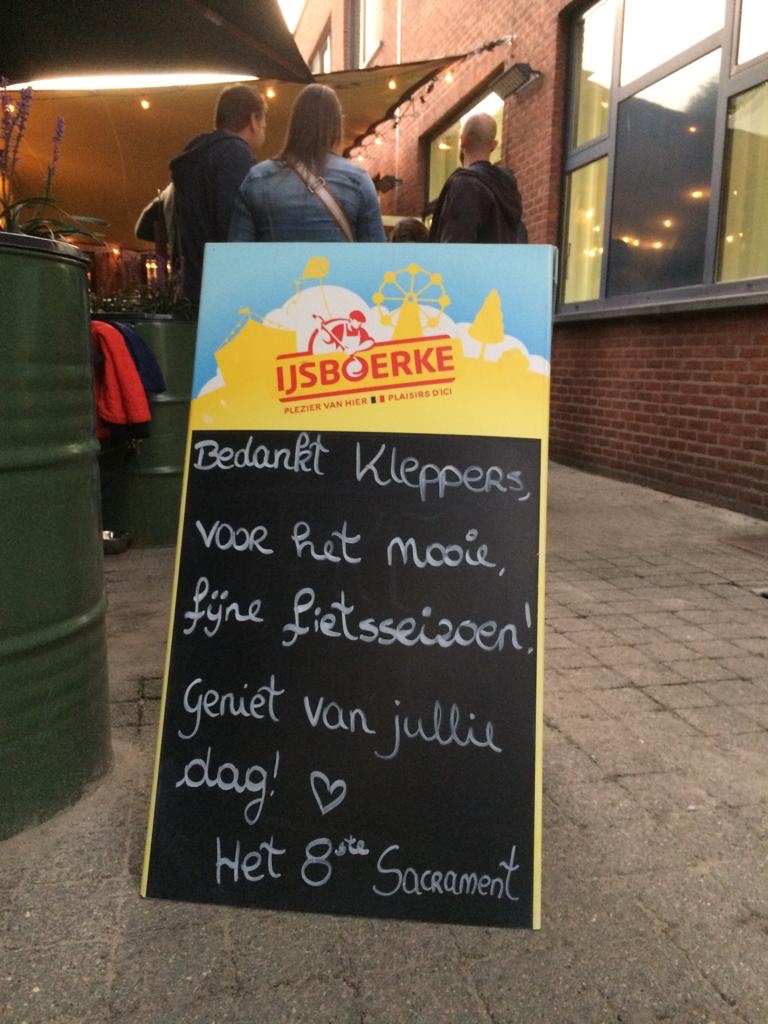 IJSBOERKE
PLEZIER VAN HIER PLAISIRS D'ICI
Bedankt Kleppers,
voor het mooie,
fijne fietsseizoen!
Geniet van jullie
dag! ♡
Het 8ste Sacrament